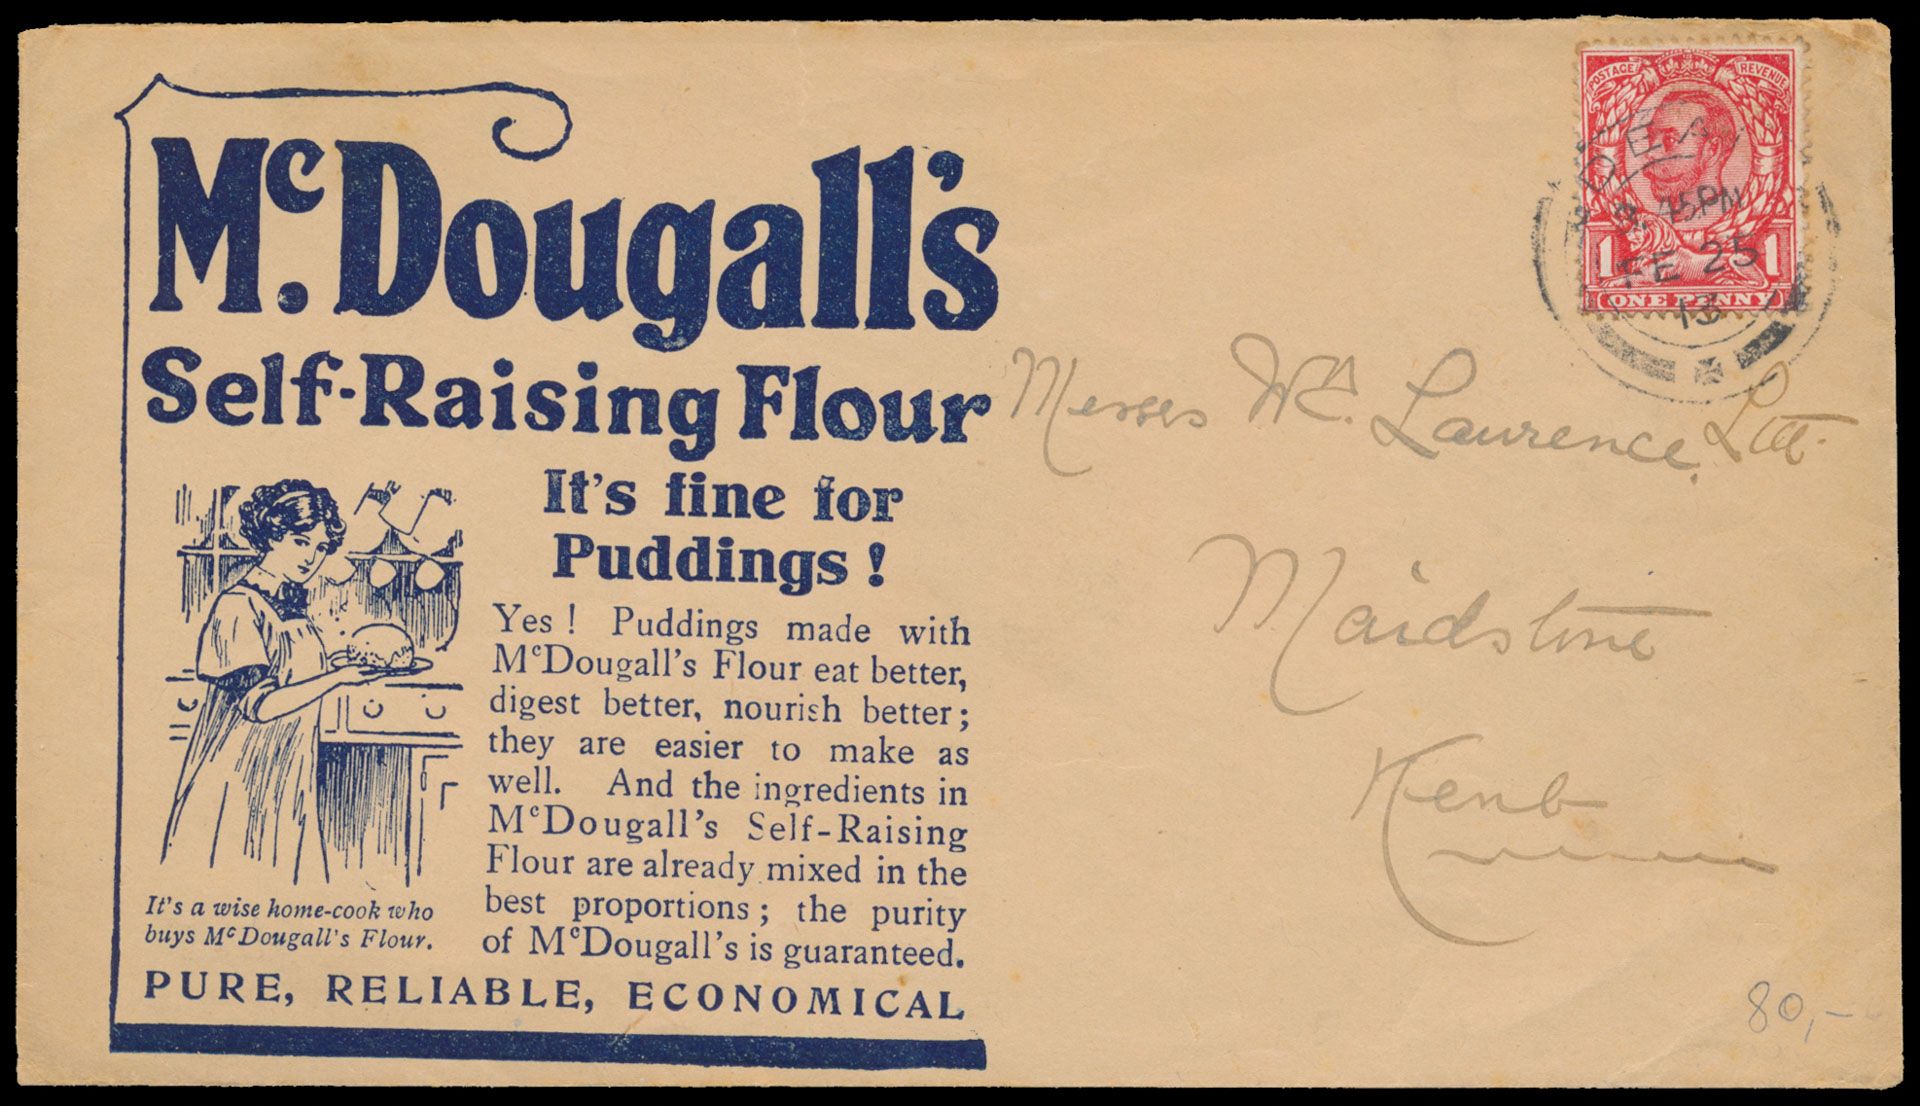 McDougall's
Self-Raising Flour
It's fine for
Puddings!
Yes! Puddings made with
McDougall's Flour eat better,
digest better, nourish better;
they are easier to make as
well. And the ingredients in
McDougall's Self-Raising
Flour are already mixed in the
best proportions; the purity
of McDougall's is guaranteed.
It's a wise home-cook who
buys McDougall's Flour.
PURE, RELIABLE, ECONOMICAL
POSTAGE REVENUE
1 1
ONE PENNY
DEAL
45PM
FE 25
13
Messrs Lawrence, Ltd.
Maidstone
Kent
80,-